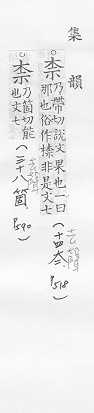 集韻
柰 乃帶切說文果也一曰
那也俗作㮈非是文七(十四夳) P518
柰 乃箇切能
也文七(三十八箇) P590